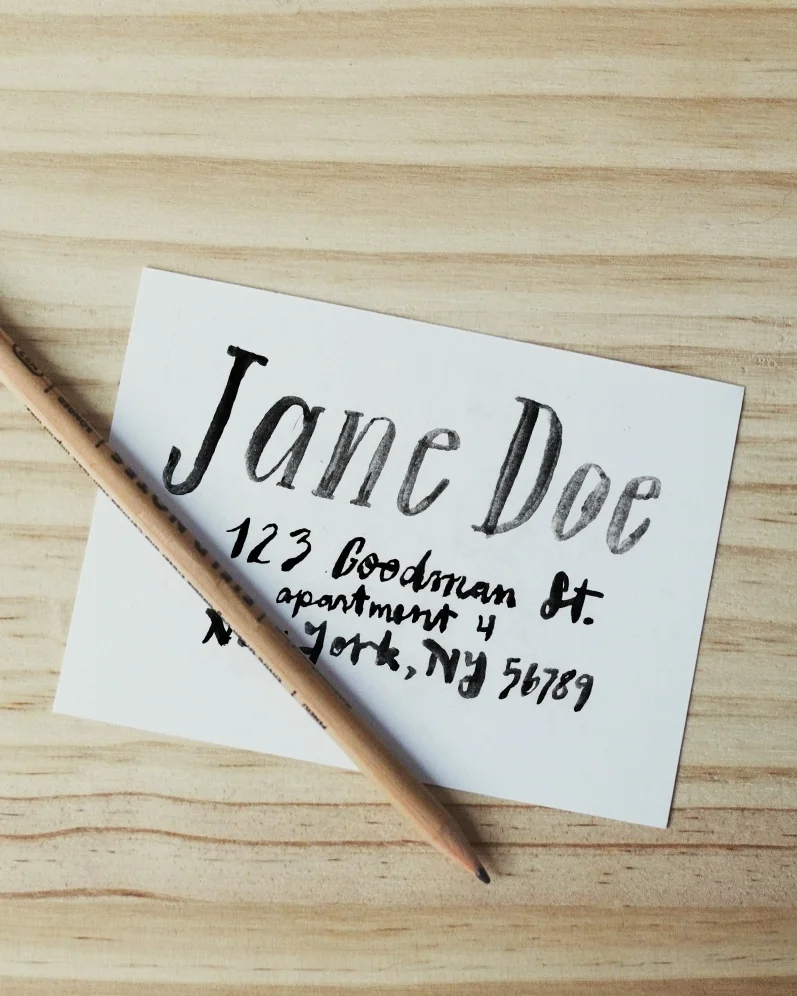 Jane Doe
123 Goodman St.
apartment 4
York, NY 56789